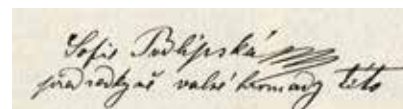 Sofie Podlipská
předsedkyně valné hromady této